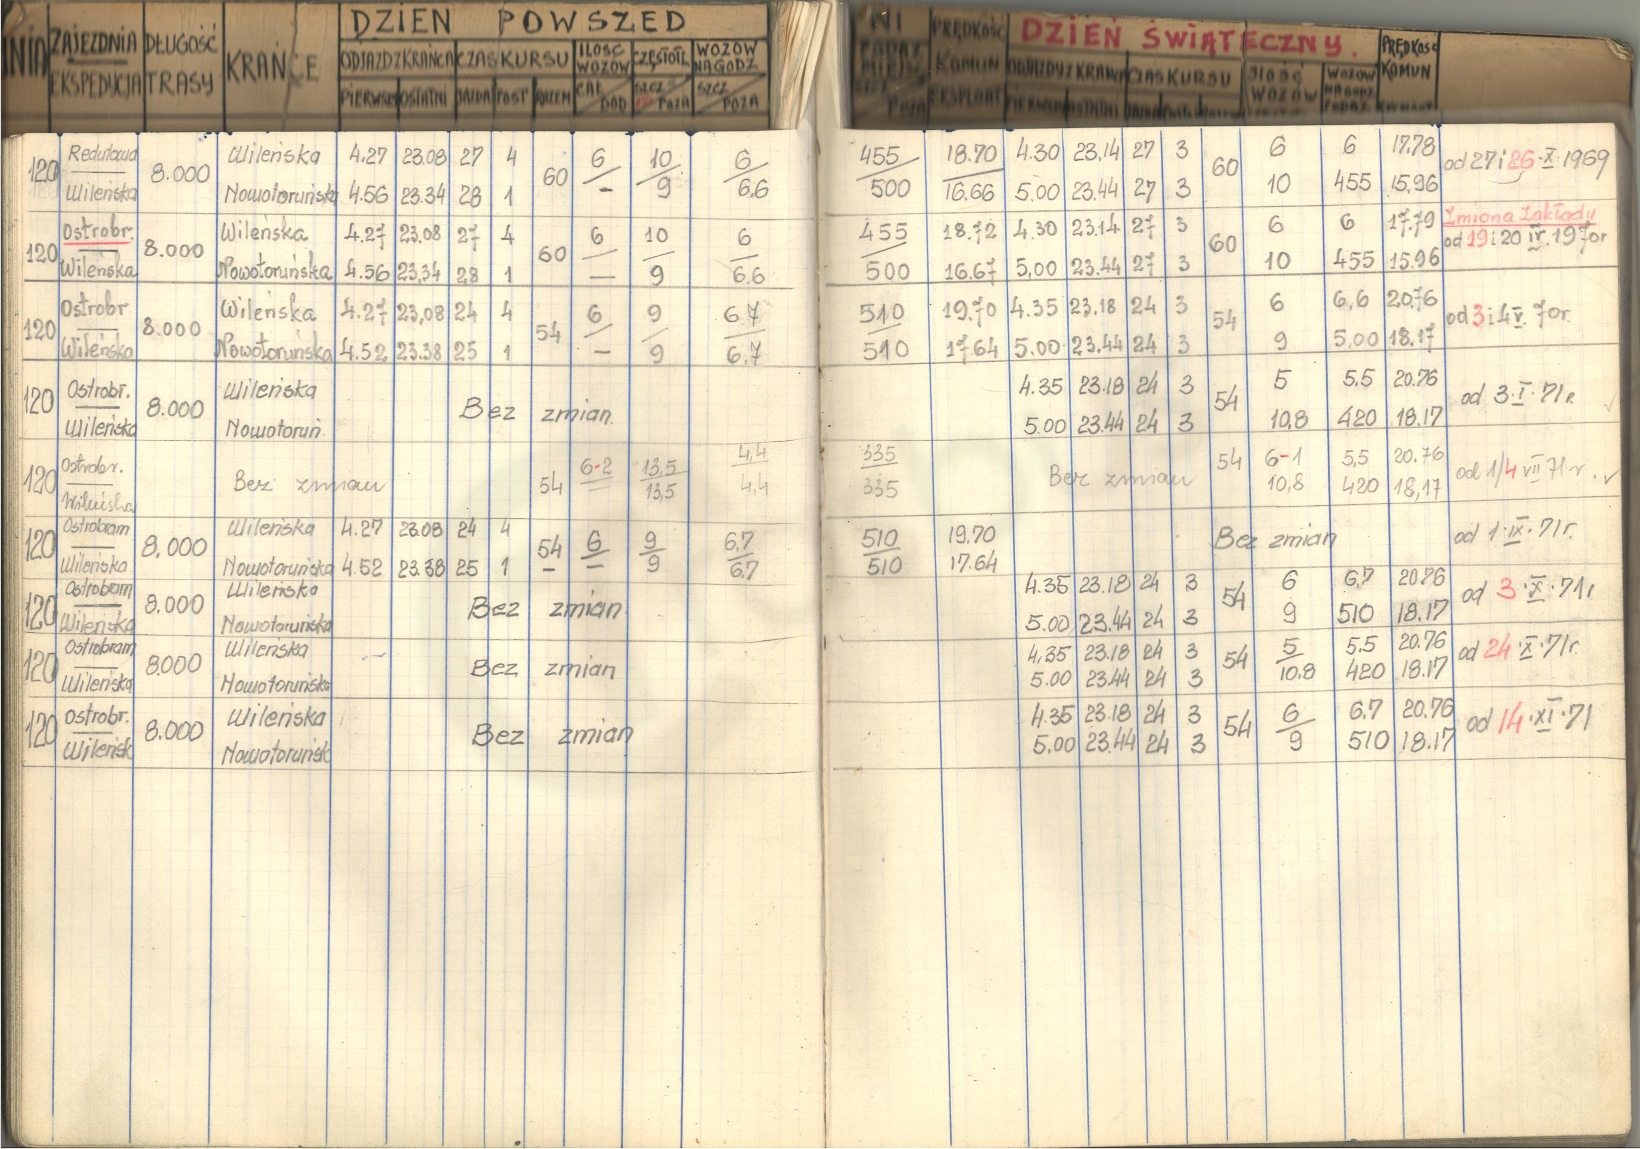 DZIEŃ POWSZED NI DZIEŃ ŚWIĄTECZNY.
ZAJEZDNIA DŁUGOŚĆ KRAŃCE ODJAZD Z KRAŃCA CZAS KURSU ILOŚĆ WOZÓW CZĘSTOTL. WOZÓW NA GODZ PRĘDKOŚĆ KOMUN EKSPLOAT ODJAZDY Z KRAŃCA CZAS KURSU ILOŚĆ WOZÓW WOZÓW NA GODZ PRĘDKOŚĆ KOMUN
EKSPEDYCJA TRASY PIERWSZY OSTATNI JAZDA POST RAZEM CAŁ DOD SZCZ POZA SZCZ POZA
120 Redutowa 8.000 Wileńska 4.27 23.08 27 4 60 6 10 6 455 18.70 4.30 23.14 27 3 60 6 6 17.78 od 27 i 26·X·1969
Wileńska Nowotoruńska 4.56 23.34 28 1 - 9 6.6 500 16.66 5.00 23.44 27 3 10 455 15,96
120 Ostrobr. 8.000 Wileńska 4.27 23.08 27 4 60 6 10 6 455 18.72 4.30 23.14 27 3 60 6 6 17.79 Zmiana Zakłady
Wileńska Nowotoruńska 4.56 23,34 28 1 — 9 6.6 500 16.67 5,00 23.44 27 3 10 455 15.96 od 19 i 20 IV. 1970r
120 Ostrobr 8.000 Wileńska 4.27 23,08 24 4 54 6 9 6.7 510 19.70 4.35 23.18 24 3 54 6 6,6 20.76 od 3 i 4 V. 70r.
Wileńska Nowotoruńska 4.52 23.38 25 1 — 9 6.7 510 17.64 5.00 23.44 24 3 9 5,00 18.17
120 Ostrobr. 8.000 Wileńska Bez zmian. 4.35 23.18 24 3 54 5 5.5 20.76 od 3·I·71r.
Wileńska Nowotoruń. 5.00 23.44 24 3 10,8 420 18.17
120 Ostrobr. Bez zmian 54 6-2 13,5 4,4 335 Bez zmian 54 6-1 5,5 20.76 od 1/4 VII 71 r.
Wileńska 13,5 4,4 335 10,8 420 18,17
120 Ostrobram 8,000 Wileńska 4.27 23.08 24 4 54 6 9 6,7 510 19.70 Bez zmian od 1·IX·71r.
Wileńska Nowotoruńska 4.52 23.38 25 1 — — 9 6.7 510 17.64
120 Ostrobram 8.000 Wileńska Bez zmian 4.35 23.18 24 3 54 6 6,7 20.76 od 3·X·71r
Wileńska Nowotoruńska 5.00 23.44 24 3 9 510 18.17
120 Ostrobram 8.000 Wileńska Bez zmian 4,35 23.18 24 3 54 5 5.5 20.76 od 24·X·71r.
Wileńska Nowotoruńska 5.00 23.44 24 3 10.8 420 18.17
120 Ostrobr. 8.000 Wileńska Bez zmian 4.35 23.18 24 3 54 6 6.7 20.76 od 14·XI·71
Wileńsk Nowotoruńsk 5.00 23.44 24 3 9 510 18.17